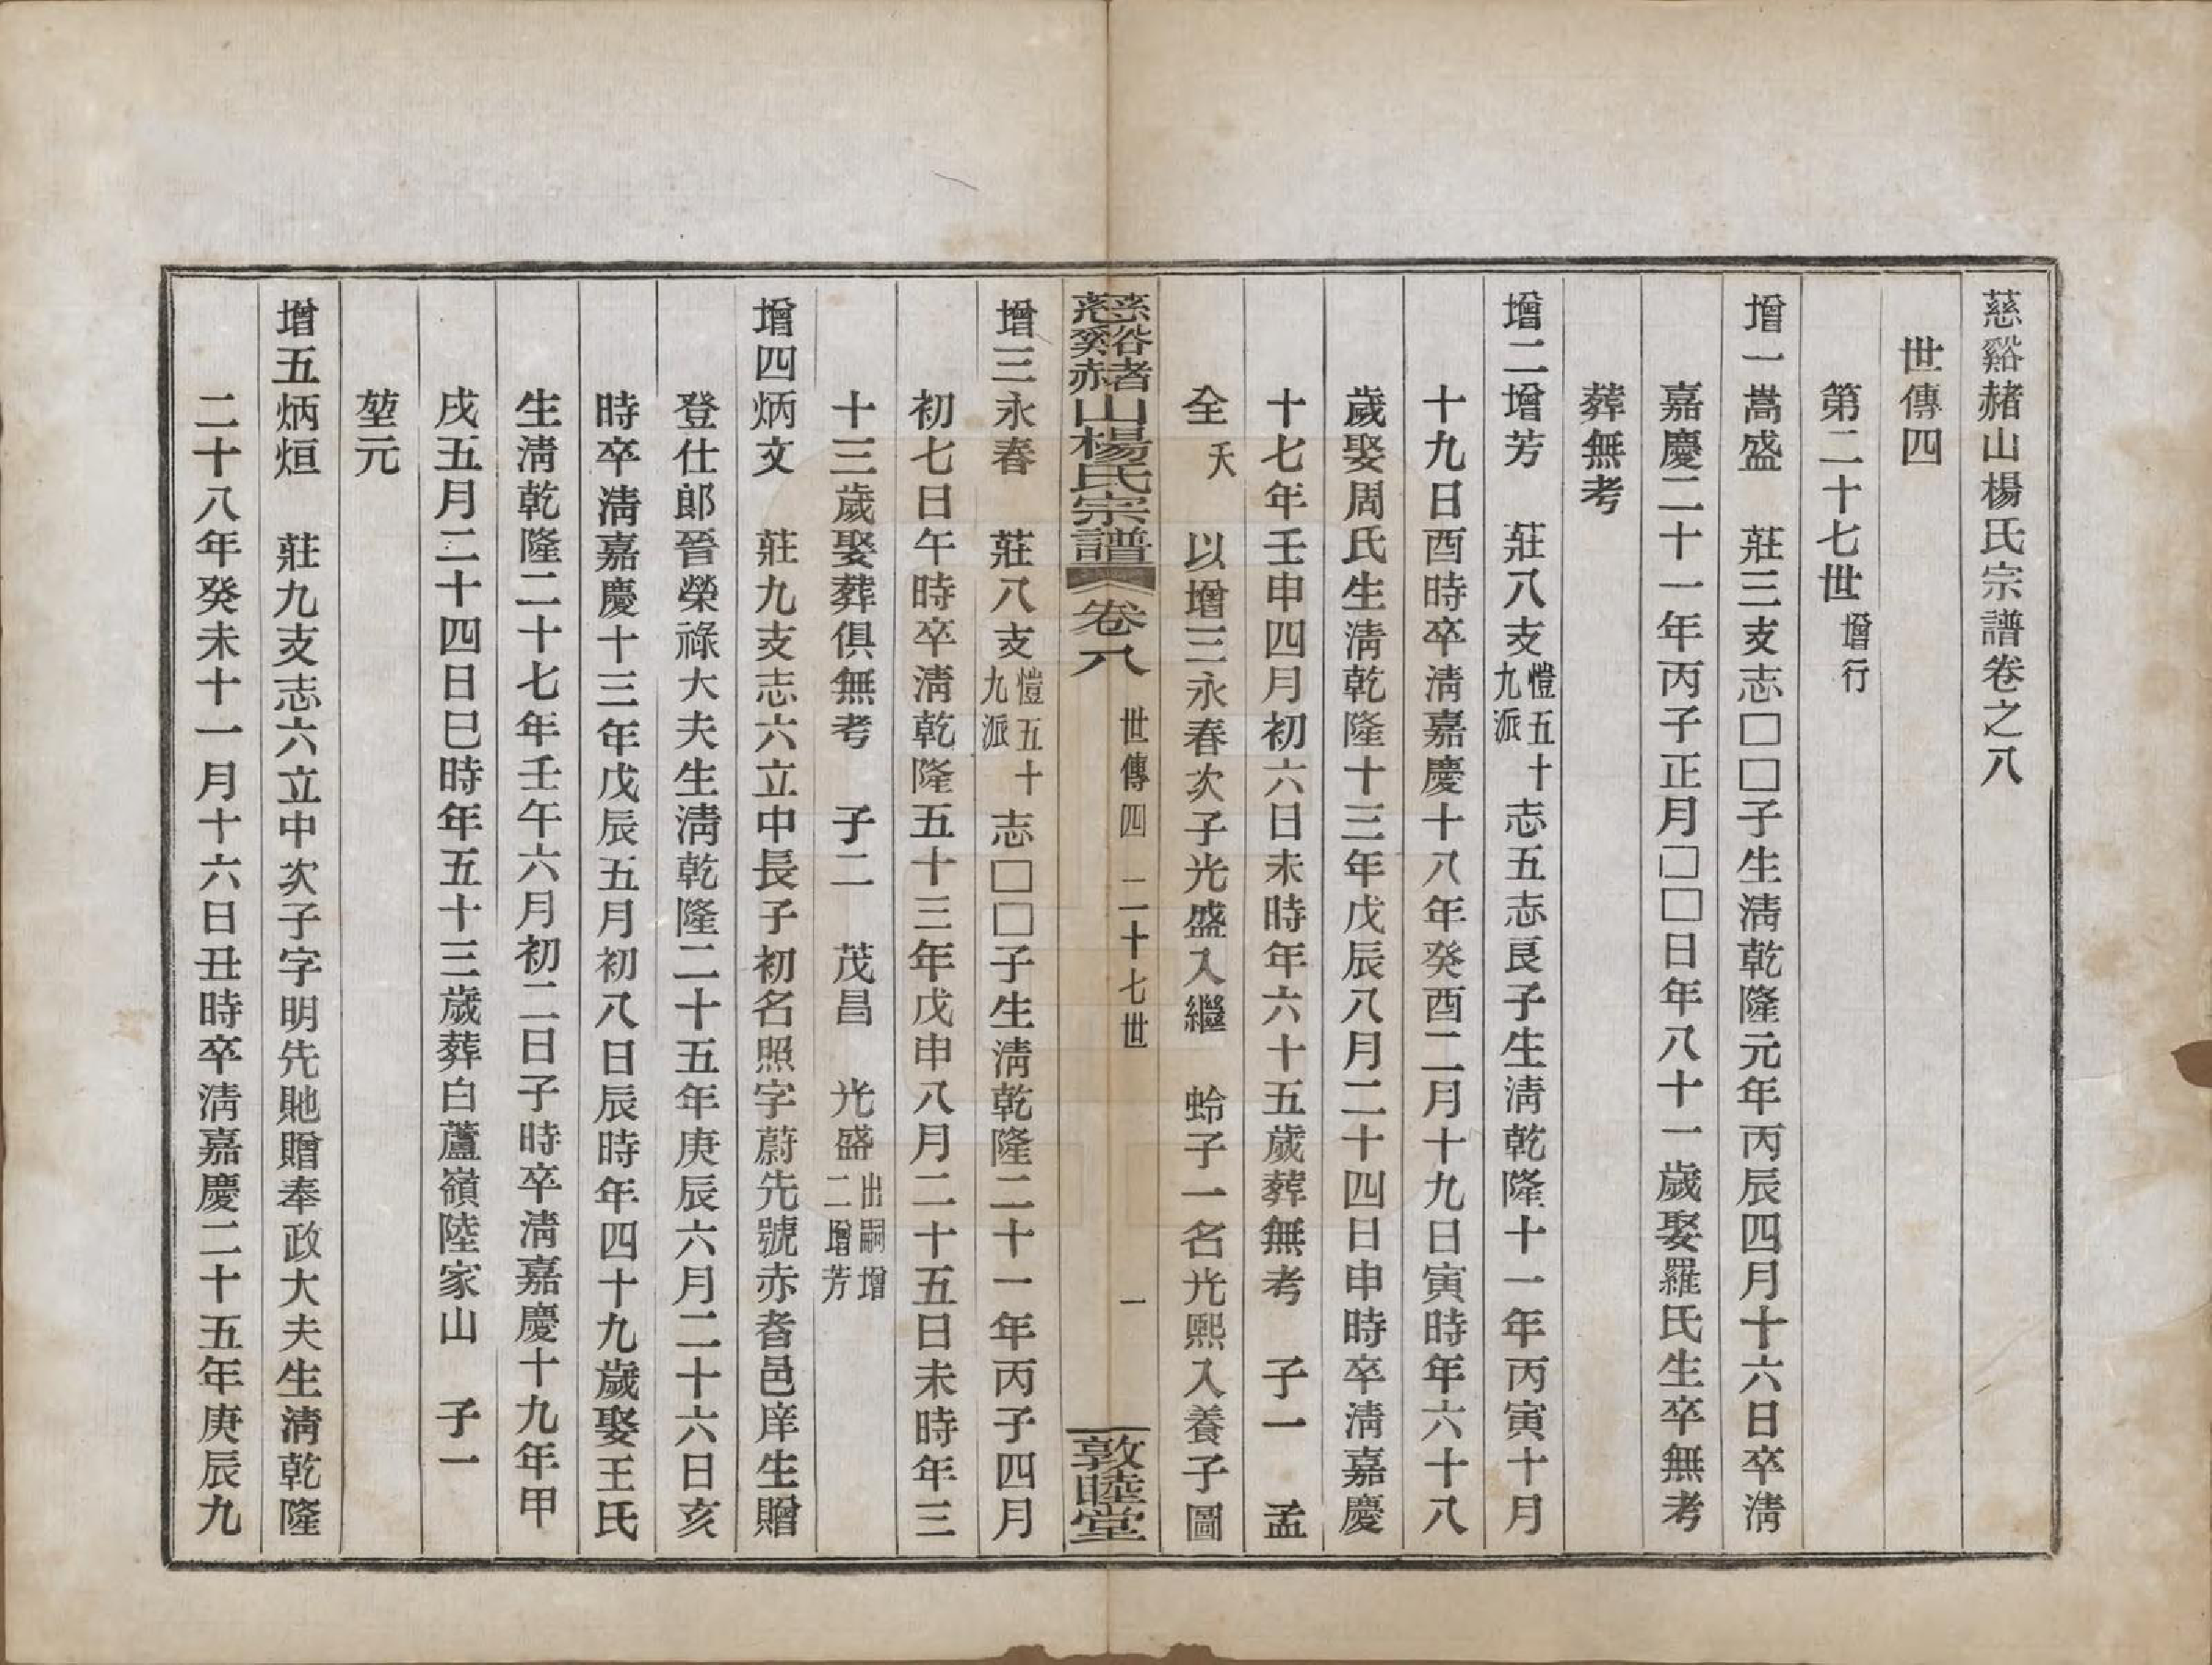 慈谿赭山楊氏宗譜卷之八
世傳四
第二十七世增行
增一嵩盛　莊三支志□□子生淸乾隆元年丙辰四月十六日卒淸
嘉慶二十一年丙子正月□□日年八十一歲娶羅氏生卒無考
葬無考
增二增芳　莊八支愷五十九派志五志良子生淸乾隆十一年丙寅十月
十九日酉時卒淸嘉慶十八年癸酉二月十九日寅時年六十八
歲娶周氏生淸乾隆十三年戊辰八月二十四日申時卒淸嘉慶
十七年壬申四月初六日未時年六十五歲葬無考　子一　孟
全夭　以增三永春次子光盛入繼　蛉子一名光熙入養子圖
慈谿赭山楊氏宗譜　卷八　世傳四　二十七世　一　敦睦堂
增三永春　莊八支愷五十九派志□□子生淸乾隆二十一年丙子四月
初七日午時卒淸乾隆五十三年戊申八月二十五日未時年三
十三歲娶葬俱無考　子二　茂昌　光盛出嗣增二增芳
增四炳文　莊九支志六立中長子初名照字蔚先號赤耆邑庠生贈
登仕郎晉榮祿大夫生淸乾隆二十五年庚辰六月二十六日亥
時卒淸嘉慶十三年戊辰五月初八日辰時年四十九歲娶王氏
生淸乾隆二十七年壬午六月初二日子時卒淸嘉慶十九年甲
戌五月二十四日巳時年五十三歲葬白蘆嶺陸家山　子一
堃元
增五炳烜　莊九支志六立中次子字明先貤贈奉政大夫生淸乾隆
二十八年癸未十一月十六日丑時卒淸嘉慶二十五年庚辰九